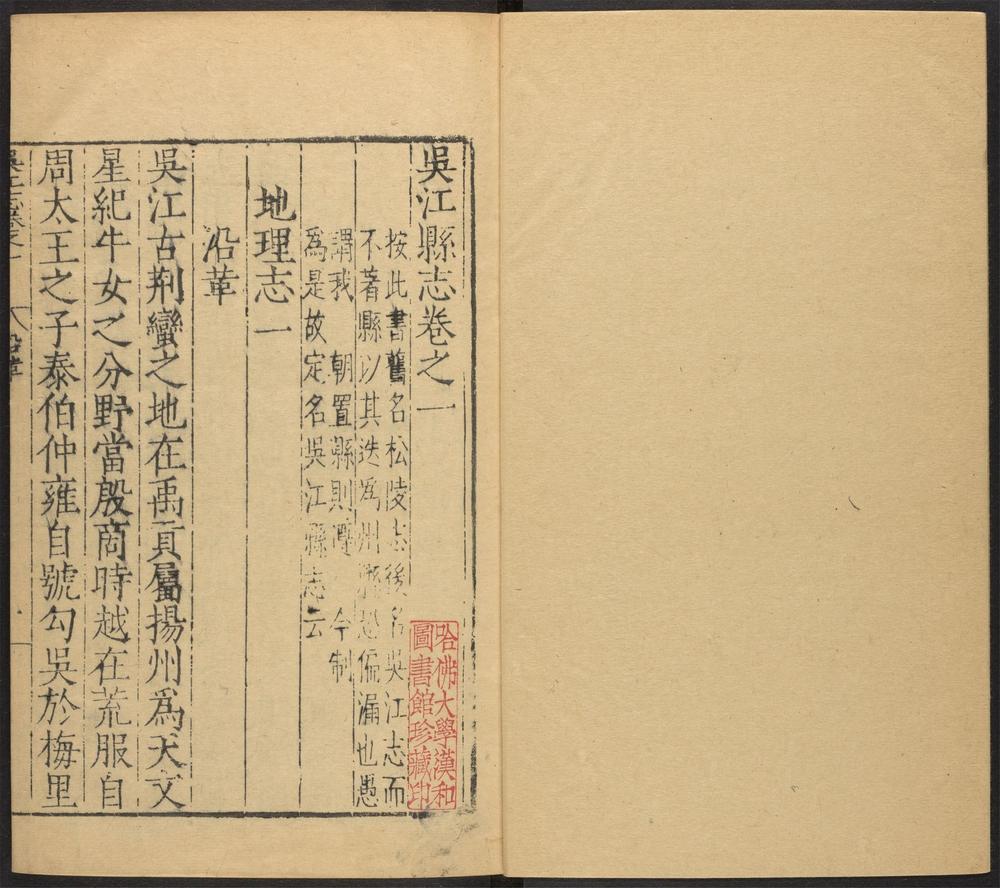 吳江縣志卷之一
按此書舊名松陵志後名吳江志而
不著縣以其迭爲州縣恐偏漏也愚
謂我 朝置縣則遵 今制
爲是故定名吳江縣志云
地理志一
沿革
吳江古荆蠻之地在禹貢屬揚州爲天文
星紀牛女之分野當殷商時越在荒服自
周太王之子泰伯仲雍自號勾吳於梅里
沿革
哈佛大學漢和
圖書館珍藏印